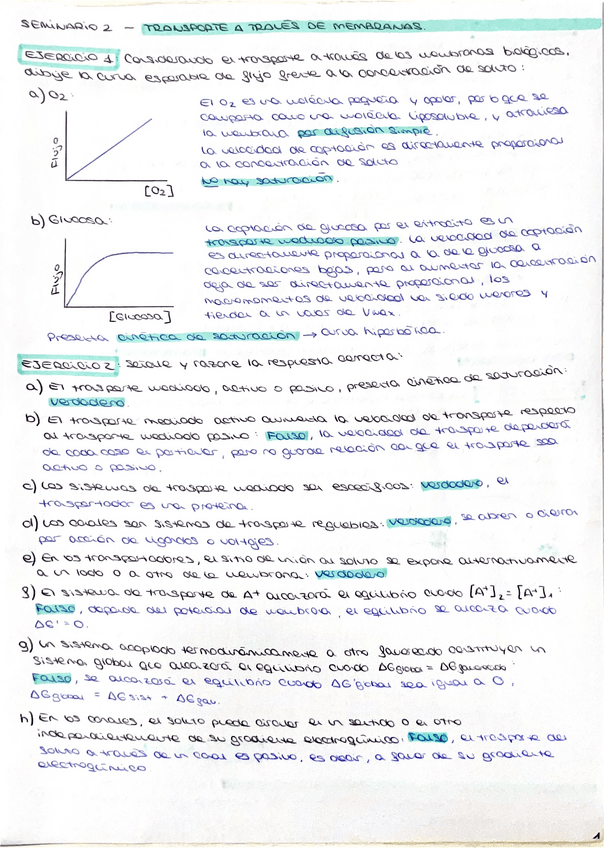 SEMINARIO 2 - TRANSPORTE A TRAVÉS DE MEMBRANAS.
EJERCICIO 1: Considerando el transporte a través de las membranas biológicas,
dibuje la curva esperable de flujo frente a la concentración de soluto:
a) O2:
El O2 es una molécula pequeña y apolar, por lo que se
comporta como una molécula liposoluble, y atraviesa
la membrana por difusión simple.
La velocidad de captación es directamente proporcional
a la concentración de soluto
No hay saturación.
Flujo
[O2]
b) Glucosa:
La captación de glucosa por el eritrocito es un
transporte mediado pasivo. La velocidad de captación
es directamente proporcional a la de glucosa a
concentraciones bajas, pero al aumentar la concentración
deja de ser directamente proporcional, los
incrementos de velocidad van siendo menores y
tienden a un valor de Vmax.
Flujo
[Glucosa]
Presenta cinética de saturación → curva hiperbólica.
EJERCICIO 2: Señale y razone la respuesta correcta:
a) El trasporte mediado, activo o pasivo, presenta cinética de saturación:
verdadero.
b) El trasporte mediado activo aumenta la velocidad de transporte respecto
al trasporte mediado pasivo: Falso, la velocidad de trasporte dependerá
de cada caso en particular, pero no guarda relación con que el trasporte sea
activo o pasivo.
c) Los sistemas de trasporte mediado son específicos: verdadero, el
trasportador es una proteína.
d) Los canales son sistemas de trasporte regulables: verdadero, se abren o cierran
por acción de ligandos o voltajes.
e) En los trasportadores, el sitio de unión al soluto se expone alternativamente
a un lado o a otro de la membrana: verdadero
f) El sistema de transporte de A+ alcanzará el equilibrio cuando [A+]2 = [A+]1:
Falso, depende del potencial de membrana, el equilibrio se alcanza cuando
ΔG' = 0.
g) Un sistema acoplado termodinámicamente a otro favorecido constituyen un
sistema global que alcanzará el equilibrio cuando ΔGglobal = ΔGfavorecido:
Falso, se alcanzará el equilibrio cuando ΔG'global sea igual a 0,
ΔGglobal = ΔGsist + ΔGfav.
h) En los canales, el soluto puede circular en un sentido o en otro
independientemente de su gradiente electroquímico: Falso, el trasporte del
soluto a través de un canal es pasivo, es decir, a favor de su gradiente
electroquímico
1